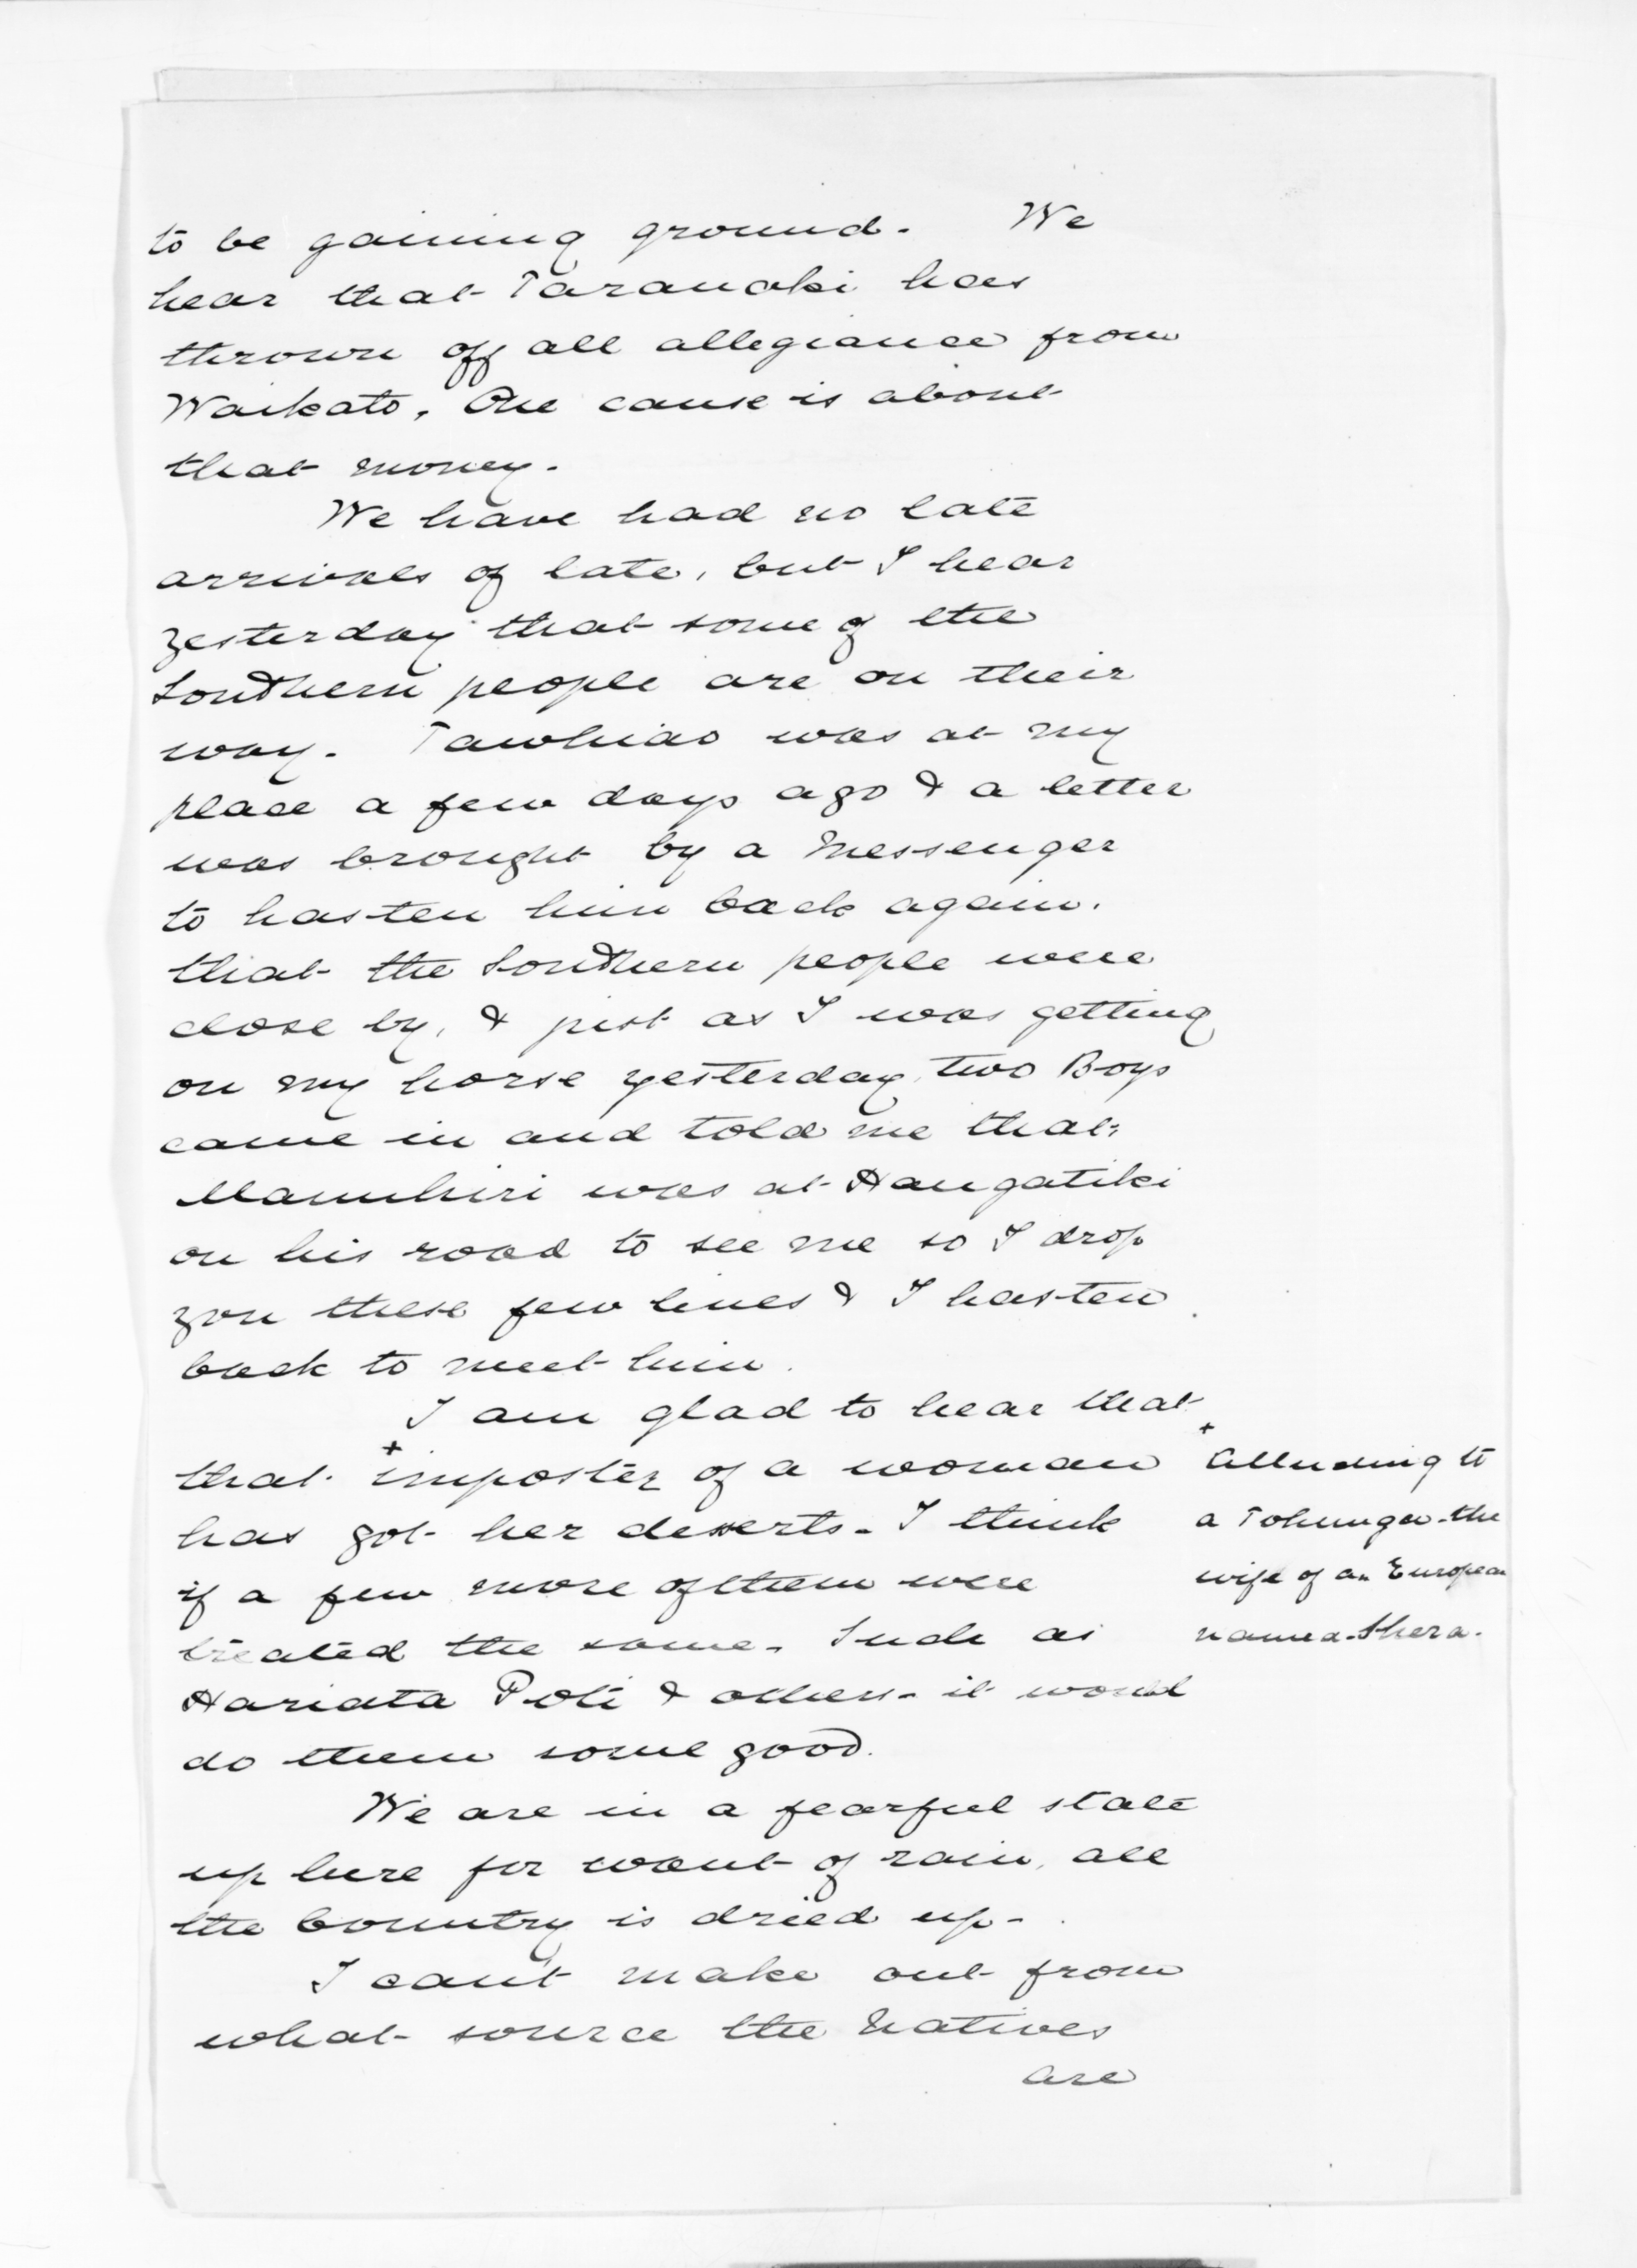 to be gaining ground. We
hear that Taranaki has
thrown off all allegiance from
Waikato, One cause is about
that money.
We have had no late
arrivals of late, but I hear
yesterday that some of the
Southern people are on their
way. Tawhiao was at my
place a few days ago & a letter
was brought by a Messenger
to hasten him back again.
that the Southern people were
close by, & just as I was getting
on my horse yesterday, two Boys
came in and told me that
Manuhiri was at Hangatiki
on his road to see me so I drop
you these few lines & I hasten
back to meet him.
I am glad to hear that
that + imposter of a woman
has got her deserts. I think
if a few more of them were
treated the same. Such as
Hariata Poti & others. it would
do them some good.
+ Alluding to
a Tohunga. the
wife of an European
named Shera.
We are in a fearful state
up here for want of rain, all
the Country is dried up.
I can't make out from
what source the Natives
are